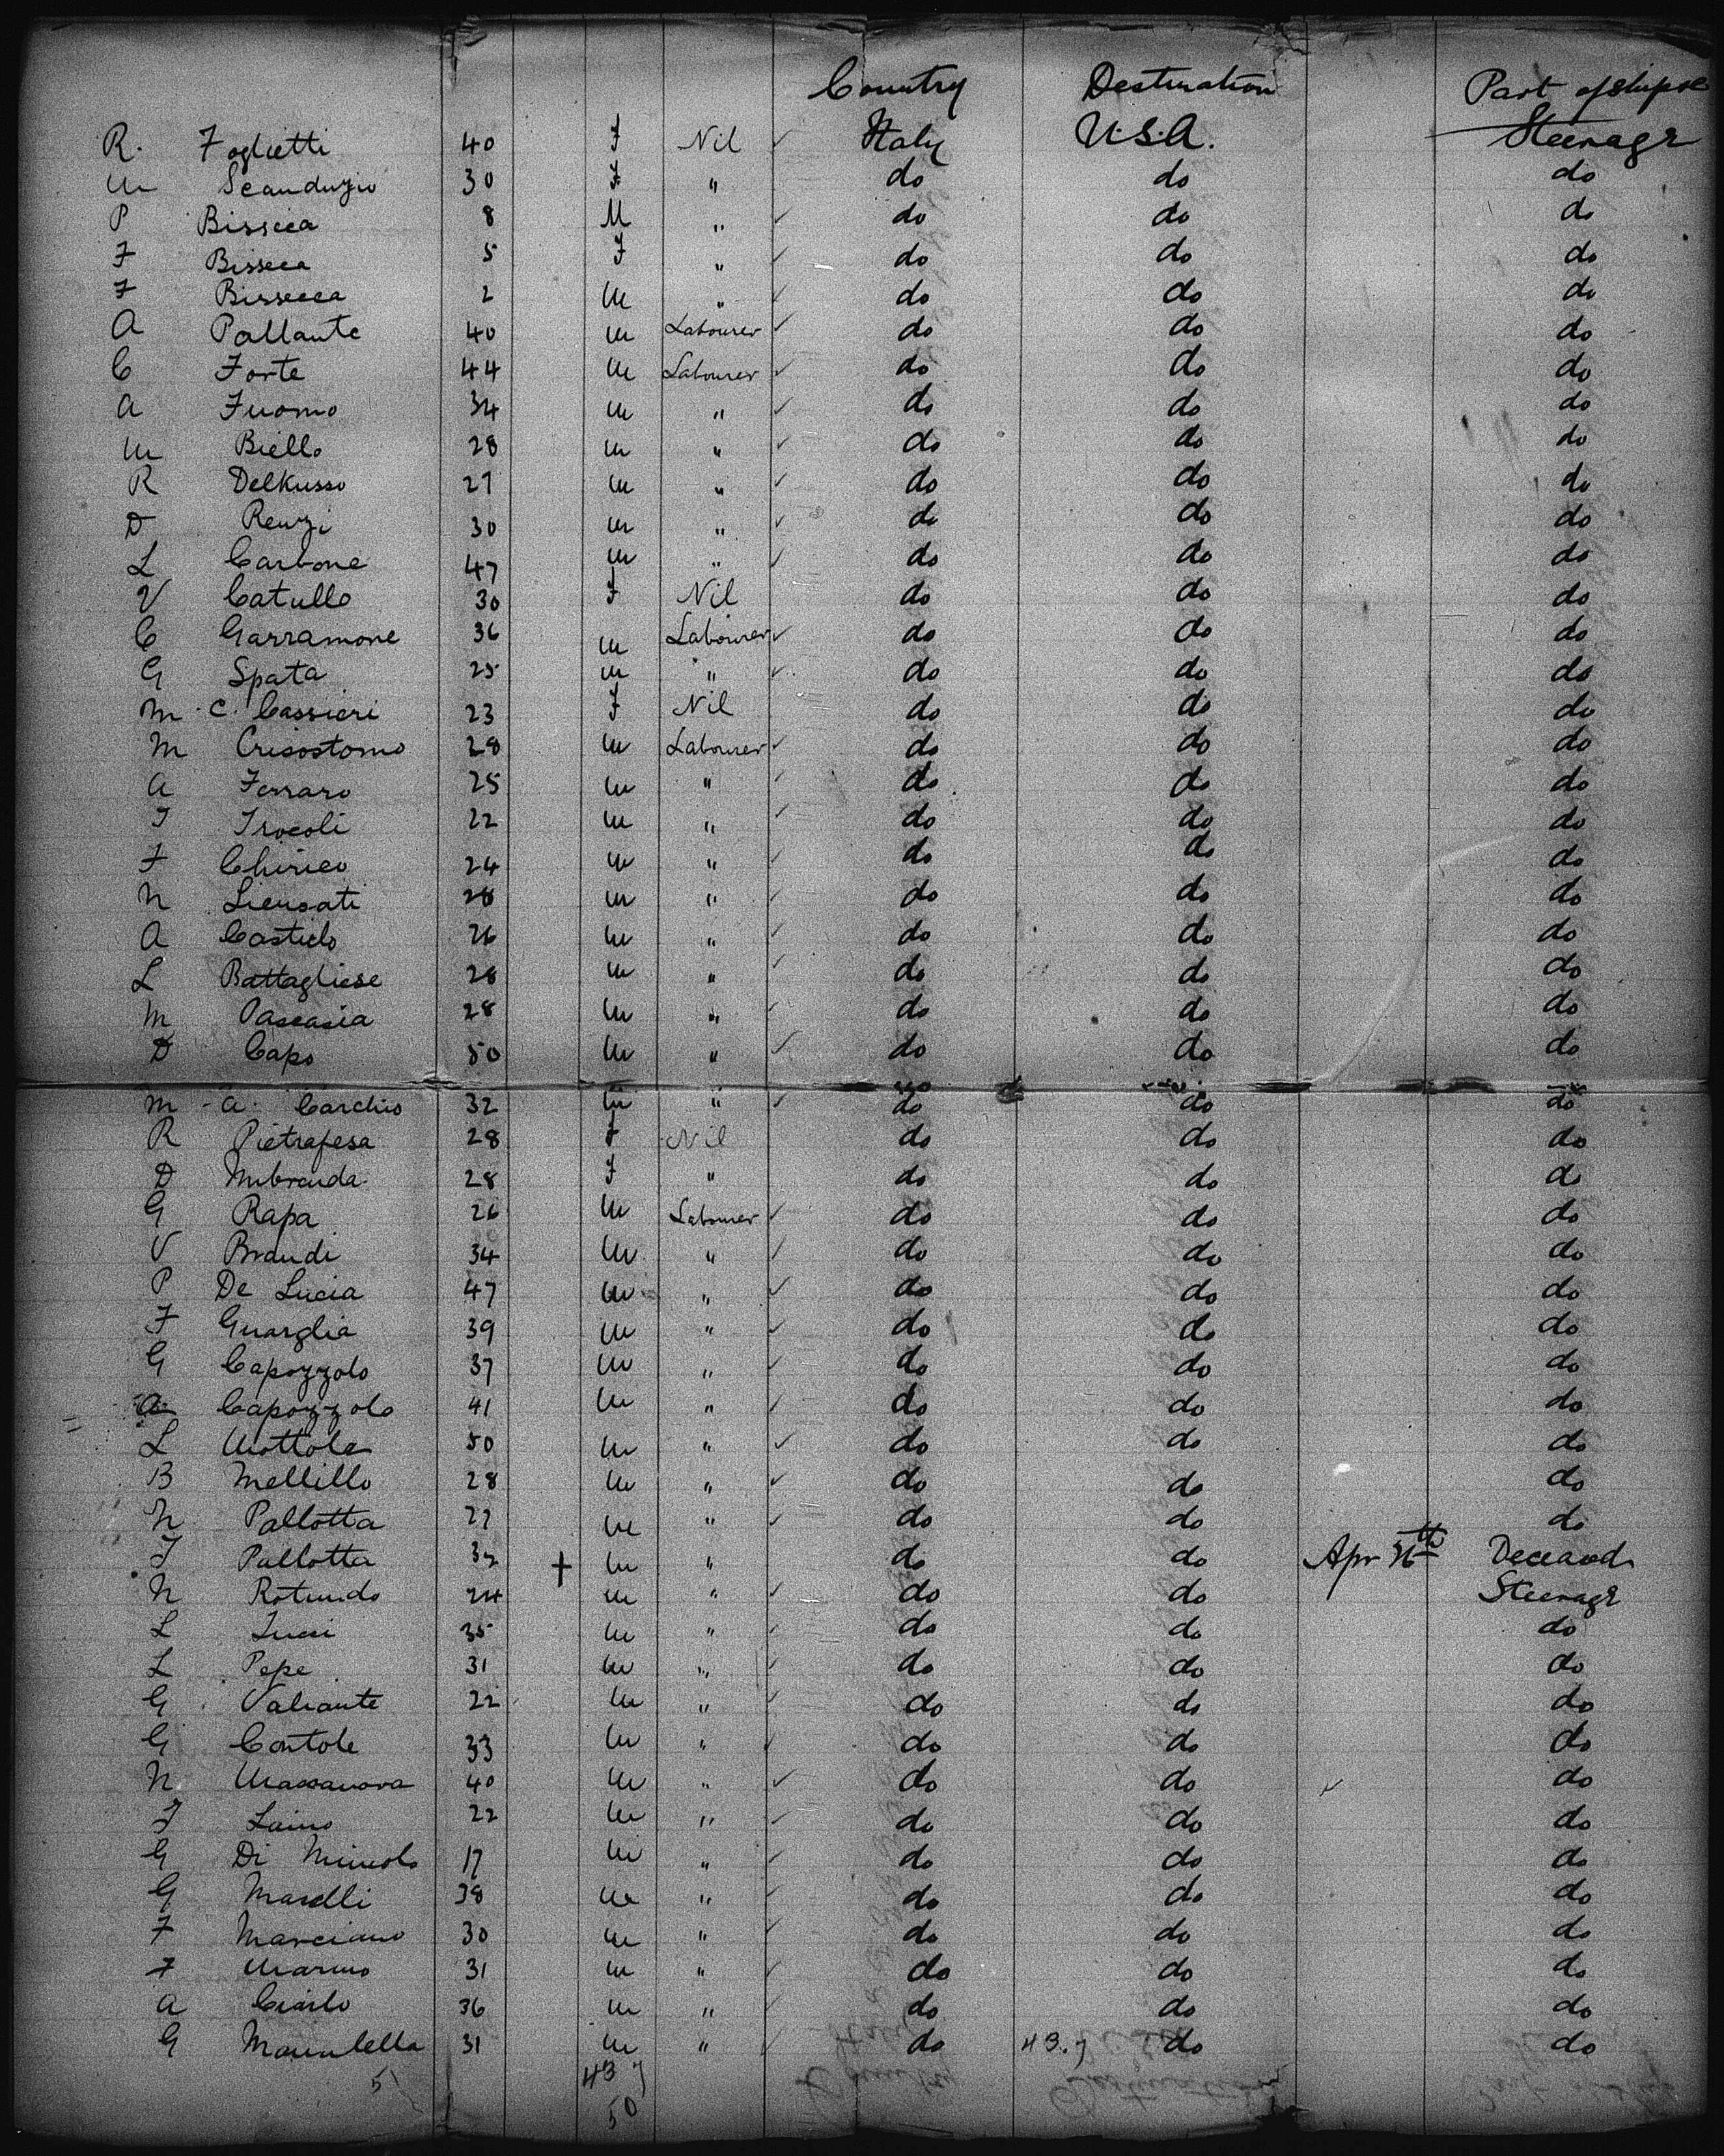 Country Destination Part of ship
R. Foglietti 40 F Nil ✓ Italy U.S.A. Steerage
M Scanduzio 30 F " do do do
P Bissecca 8 M " ✓ do do do
F Bissecca 5 F " ✓ do do do
F Bissecca 2 M " ✓ do do do
A Pallante 40 M Labourer ✓ do do do
C Forte 44 M Labourer ✓ do do do
A Fuomo 34 M " ✓ do do do
M Biello 28 M " ✓ do do do
R Delkusso 27 M " ✓ do do do
D Renzi 30 M " ✓ do do do
L Carbone 47 M " ✓ do do do
V Catullo 30 F Nil do do do
C Garramone 36 M Labourer ✓ do do do
G Spata 25 M " ✓ do do do
M. C. Cassieri 23 F Nil do do do
M Crisostomo 28 M Labourer ✓ do do do
A Ferraro 25 M " ✓ do do do
F Trocoli 22 M " ✓ do do do
F Chirico 24 M " ✓ do do do
N Licusati 28 M " ✓ do do do
A Costielo 26 M " ✓ do do do
L Battagliese 28 M " ✓ do do do
M Pascasia 28 M " ✓ do do do
D Capo 50 M " ✓ do do do
M. A. Carchio 32 M " ✓ do do do
R Pietrafesa 28 F Nil do do do
D 28 F " do do do
G Rapa 26 M Labourer ✓ do do do
V Brandi 34 M " ✓ do do do
P De Lucia 47 M " ✓ do do do
F Guarglia 39 M " ✓ do do do
G Capozzolo 37 M " ✓ do do do
A Capozzolo 41 M " ✓ do do do
L Mottola 50 M " ✓ do do do
B Mellillo 28 M " ✓ do do do
N Pallotta 27 M " ✓ do do do
F Pallotta 32 † M " do do Apr 26th Deceased
N Rotundo 24 M " ✓ do do Steerage
L Lucci 35 M " ✓ do do do
L Pepe 31 M " ✓ do do do
G Valiante 22 M " ✓ do do do
G Contole 33 M " ✓ do do do
N Massanova 40 M " ✓ do do ✓ do
F Laino 22 M " ✓ do do do
G Di Mincolo 17 M " ✓ do do do
G Maselli 38 M " ✓ do do do
F Marciano 30 M " ✓ do do do
F Marino 31 M " ✓ do do do
A Ciarlo 36 M " ✓ do do do
G 31 M " ✓ do 43. 7 do do
51 43 7
50